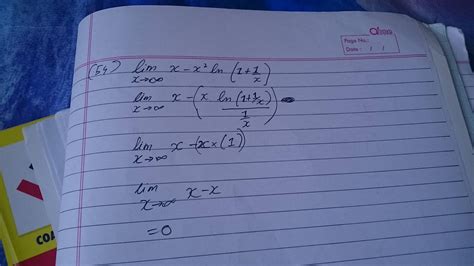 Page No.:
Date: / /
(54) lim x→∞ x - x² ln (1+1/x)
lim x→∞ x - (x ln(1+1/x) / 1/x)
lim x→∞ x - (x × (1))
lim x→∞ x - x
= 0
COA